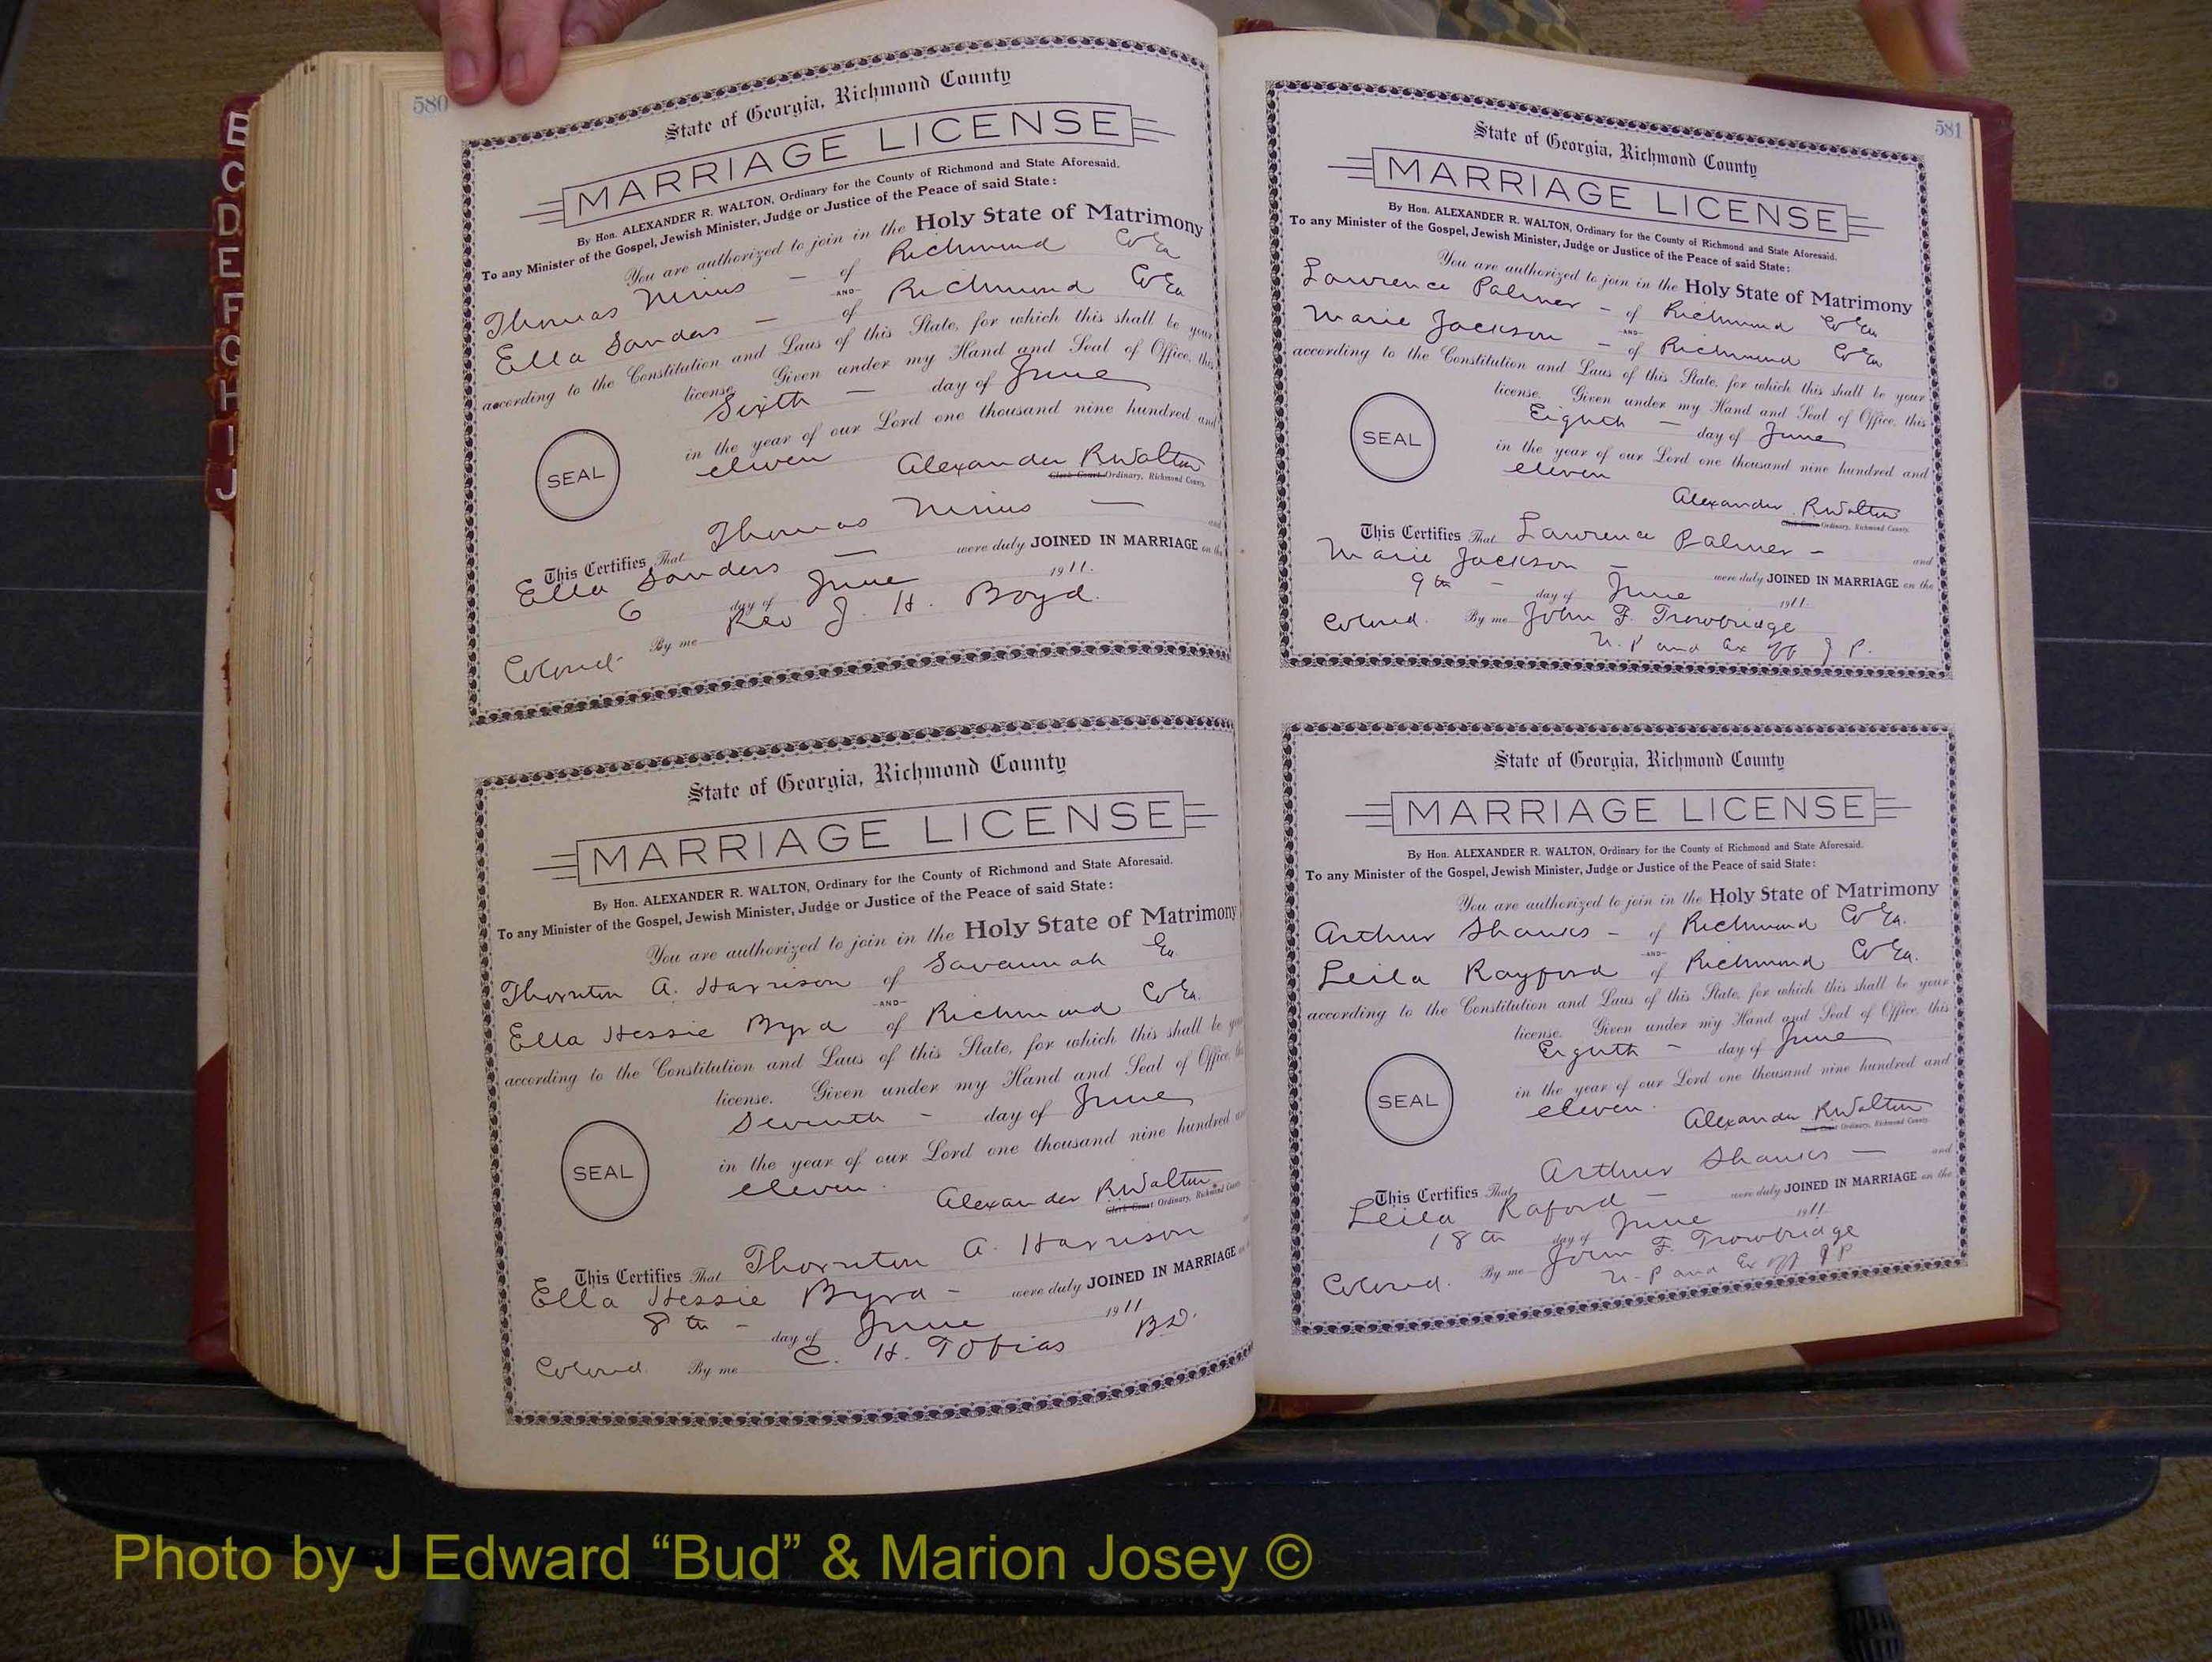 B
C
D
E
F
G
H
I
J
580
State of Georgia, Richmond County
MARRIAGE LICENSE
By Hon. ALEXANDER R. WALTON, Ordinary for the County of Richmond and State Aforesaid.
To any Minister of the Gospel, Jewish Minister, Judge or Justice of the Peace of said State:
You are authorized to join in the Holy State of Matrimony
Thomas — of Richmond Co Ga
-AND-
Ella Sanders — of Richmond Co Ga
according to the Constitution and Laws of this State, for which this shall be your
license. Given under my Hand and Seal of Office, this
Sixth — day of June
in the year of our Lord one thousand nine hundred and
eleven Alexander R Walton
Clerk Court Ordinary, Richmond County.
SEAL
This Certifies That Thomas — and
Ella Sanders — were duly JOINED IN MARRIAGE on the
6 day of June 1911.
By me Rev J. H. Boyd.
Colored
State of Georgia, Richmond County
MARRIAGE LICENSE
By Hon. ALEXANDER R. WALTON, Ordinary for the County of Richmond and State Aforesaid.
To any Minister of the Gospel, Jewish Minister, Judge or Justice of the Peace of said State:
You are authorized to join in the Holy State of Matrimony
Thornton A. Harrison of Savannah Ga.
-AND-
Ella Hessie Byrd of Richmond Co Ga.
according to the Constitution and Laws of this State, for which this shall be
license. Given under my Hand and Seal of Office,
Seventh — day of June
in the year of our Lord one thousand nine hundred
eleven. Alexander R Walton
Clerk Court Ordinary, Richmond County
SEAL
This Certifies That Thornton A. Harrison
Ella Hessie Byrd — were duly JOINED IN MARRIAGE
8th — day of June 1911
Colored. By me C. H. Tobias B.D.
581
State of Georgia, Richmond County
MARRIAGE LICENSE
By Hon. ALEXANDER R. WALTON, Ordinary for the County of Richmond and State Aforesaid.
To any Minister of the Gospel, Jewish Minister, Judge or Justice of the Peace of said State:
You are authorized to join in the Holy State of Matrimony
Lawrence Palmer — of Richmond Co Ga
-AND-
Marie Jackson — of Richmond Co Ga.
according to the Constitution and Laws of this State, for which this shall be your
license. Given under my Hand and Seal of Office, this
Eighth — day of June
in the year of our Lord one thousand nine hundred and
eleven
Alexander R Walton
Clerk Court Ordinary, Richmond County.
SEAL
This Certifies That Lawrence Palmer — and
Marie Jackson — were duly JOINED IN MARRIAGE on the
9th — day of June 1911.
Colored. By me John F. Trowbridge
N. P and Ex off J P.
State of Georgia, Richmond County
MARRIAGE LICENSE
By Hon. ALEXANDER R. WALTON, Ordinary for the County of Richmond and State Aforesaid.
To any Minister of the Gospel, Jewish Minister, Judge or Justice of the Peace of said State:
You are authorized to join in the Holy State of Matrimony
Arthur Shanks — of Richmond Co Ga.
-AND-
Leila Rayford of Richmond Co Ga.
according to the Constitution and Laws of this State, for which this shall be your
license. Given under my Hand and Seal of Office, this
Eighth — day of June
in the year of our Lord one thousand nine hundred and
eleven. Alexander R Walton
Clerk Court Ordinary, Richmond County.
SEAL
This Certifies That Arthur Shanks — and
Leila Raford — were duly JOINED IN MARRIAGE on the
18th day of June 1911
Colored. By me John F. Trowbridge
N. P and Ex off J P
Photo by J Edward “Bud” & Marion Josey ©